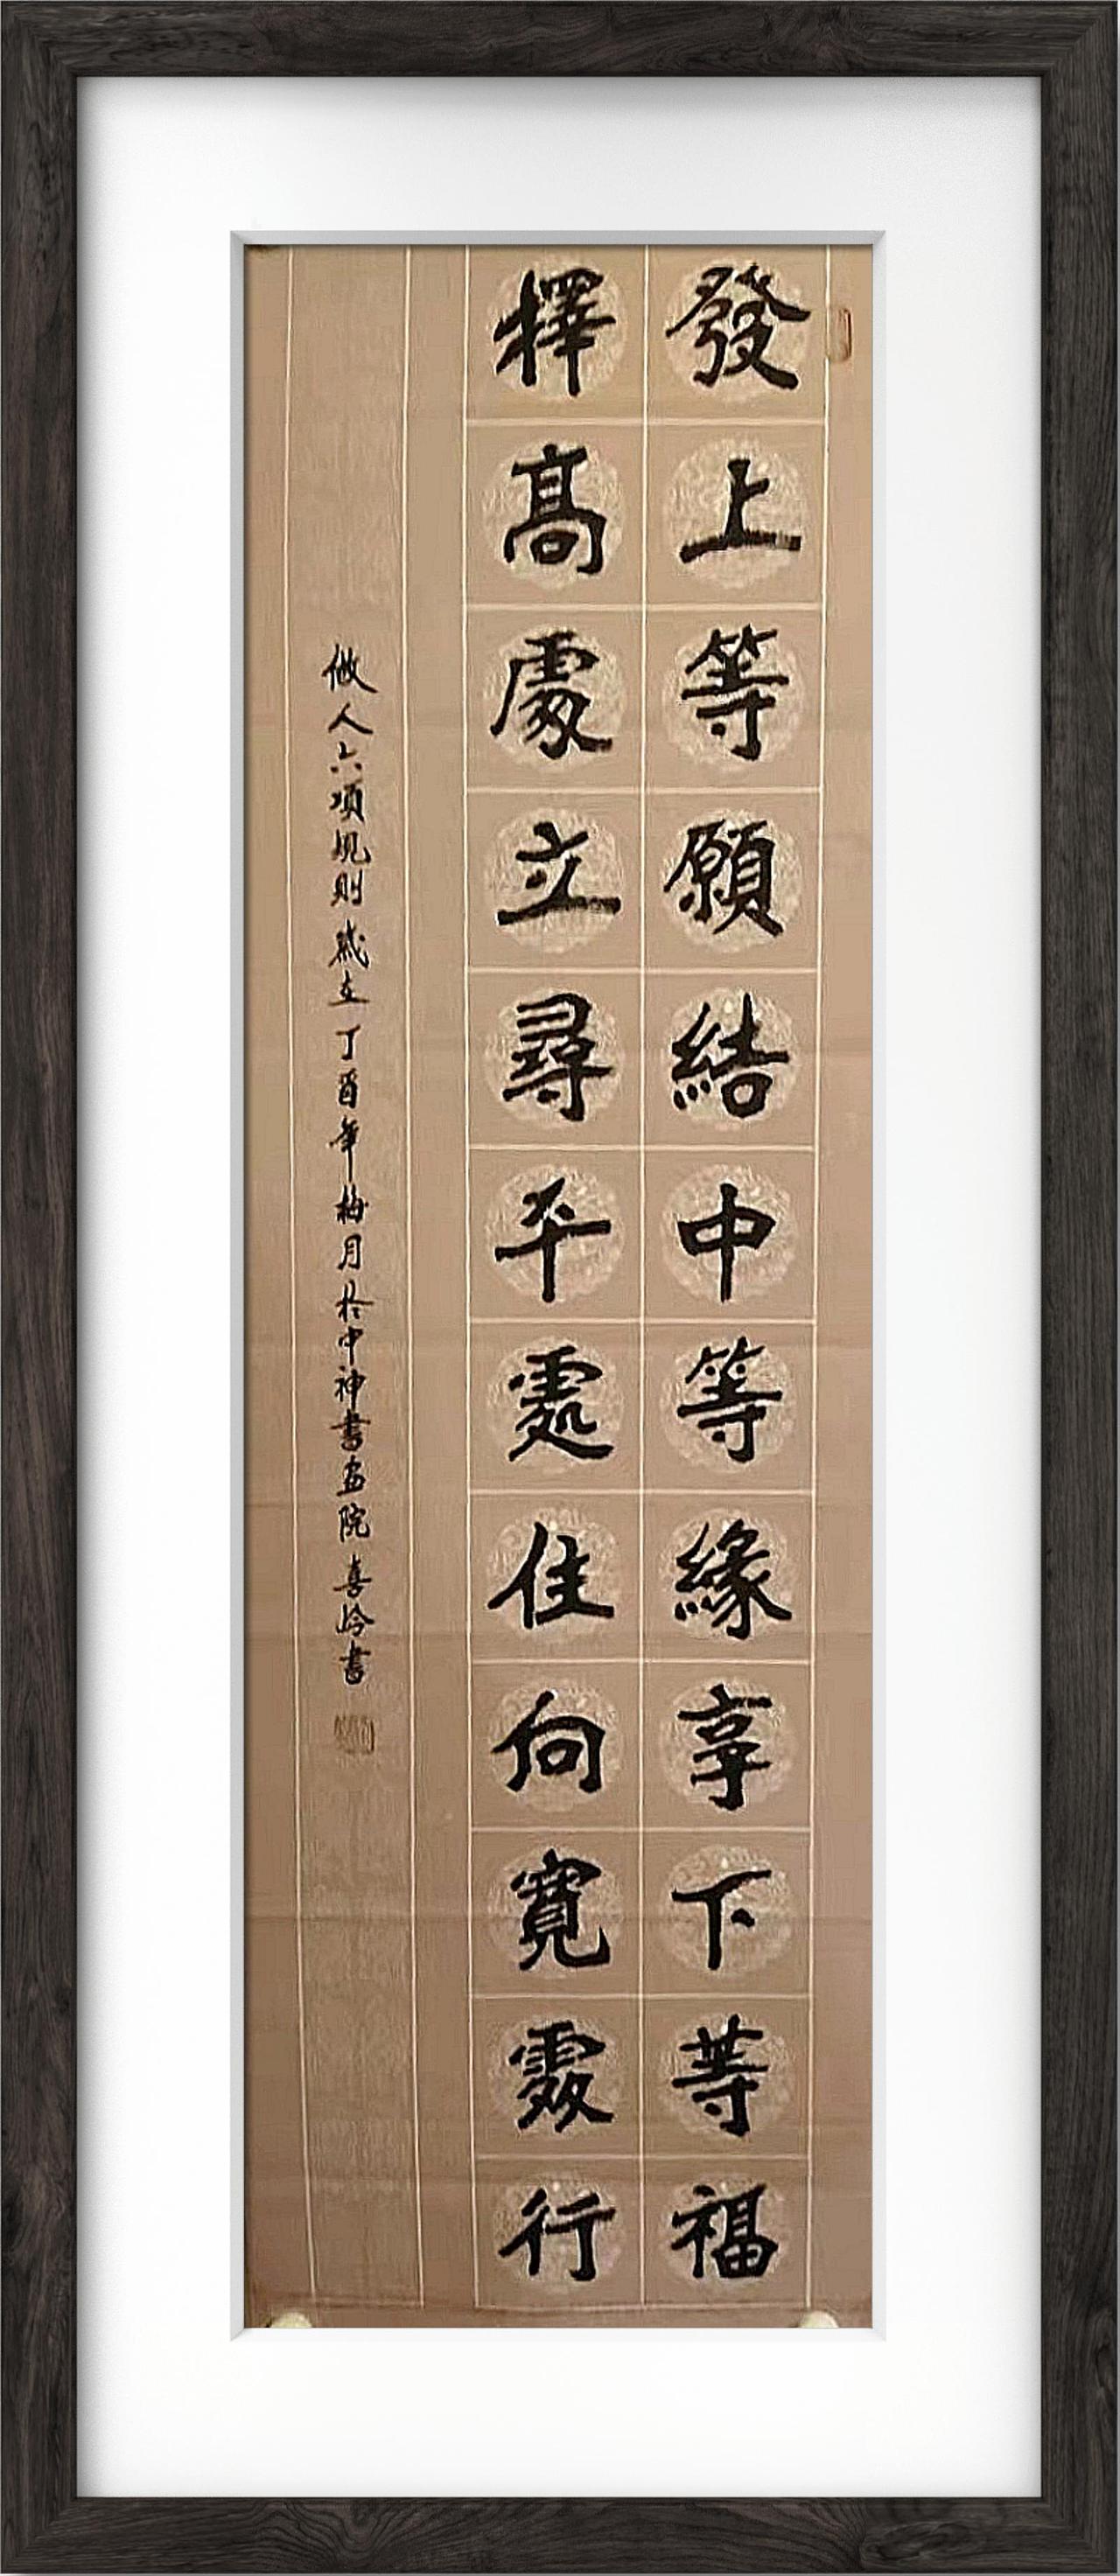 發上等願結中等緣享下等福
擇高處立尋平處住向寬處行
做人六項規則歲在丁酉年梅月於中神書画院喜岭書